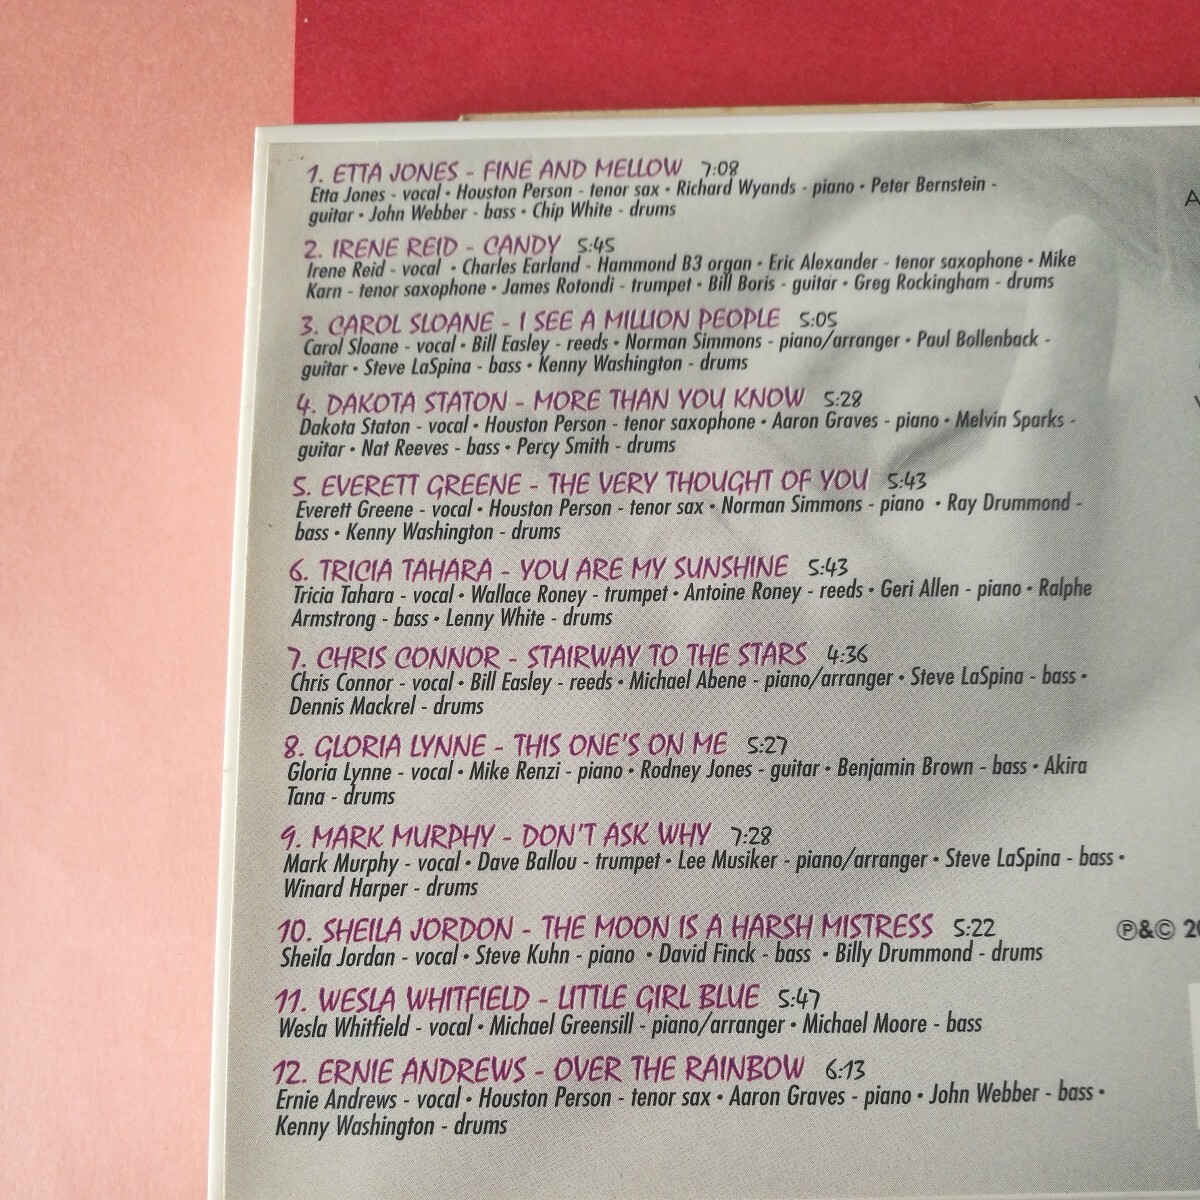 1. ETTA JONES - FINE AND MELLOW 7:08
Etta Jones - vocal • Houston Person - tenor sax • Richard Wyands - piano • Peter Bernstein -
guitar • John Webber - bass • Chip White - drums
2. IRENE REID - CANDY 5:45
Irene Reid - vocal • Charles Earland - Hammond B3 organ • Eric Alexander - tenor saxophone • Mike
Karn - tenor saxophone • James Rotondi - trumpet • Bill Boris - guitar • Greg Rockingham - drums
3. CAROL SLOANE - I SEE A MILLION PEOPLE 5:05
Carol Sloane - vocal • Bill Easley - reeds • Norman Simmons - piano/arranger • Paul Bollenback -
guitar • Steve LaSpina - bass • Kenny Washington - drums
4. DAKOTA STATON - MORE THAN YOU KNOW 5:28
Dakota Staton - vocal • Houston Person - tenor saxophone • Aaron Graves - piano • Melvin Sparks -
guitar • Nat Reeves - bass • Percy Smith - drums
5. EVERETT GREENE - THE VERY THOUGHT OF YOU 5:43
Everett Greene - vocal • Houston Person - tenor sax • Norman Simmons - piano • Ray Drummond -
bass • Kenny Washington - drums
6. TRICIA TAHARA - YOU ARE MY SUNSHINE 5:43
Tricia Tahara - vocal • Wallace Roney - trumpet • Antoine Roney - reeds • Geri Allen - piano • Ralphe
Armstrong - bass • Lenny White - drums
7. CHRIS CONNOR - STAIRWAY TO THE STARS 4:36
Chris Connor - vocal • Bill Easley - reeds • Michael Abene - piano/arranger • Steve LaSpina - bass •
Dennis Mackrel - drums
8. GLORIA LYNNE - THIS ONE'S ON ME 5:27
Gloria Lynne - vocal • Mike Renzi - piano • Rodney Jones - guitar • Benjamin Brown - bass • Akira
Tana - drums
9. MARK MURPHY - DON'T ASK WHY 7:28
Mark Murphy - vocal • Dave Ballou - trumpet • Lee Musiker - piano/arranger • Steve LaSpina - bass •
Winard Harper - drums
10. SHEILA JORDON - THE MOON IS A HARSH MISTRESS 5:22
Sheila Jordan - vocal • Steve Kuhn - piano • David Finck - bass • Billy Drummond - drums
11. WESLA WHITFIELD - LITTLE GIRL BLUE 5:47
Wesla Whitfield - vocal • Michael Greensill - piano/arranger • Michael Moore - bass
12. ERNIE ANDREWS - OVER THE RAINBOW 6:13
Ernie Andrews - vocal • Houston Person - tenor sax • Aaron Graves - piano • John Webber - bass •
Kenny Washington - drums
℗&©